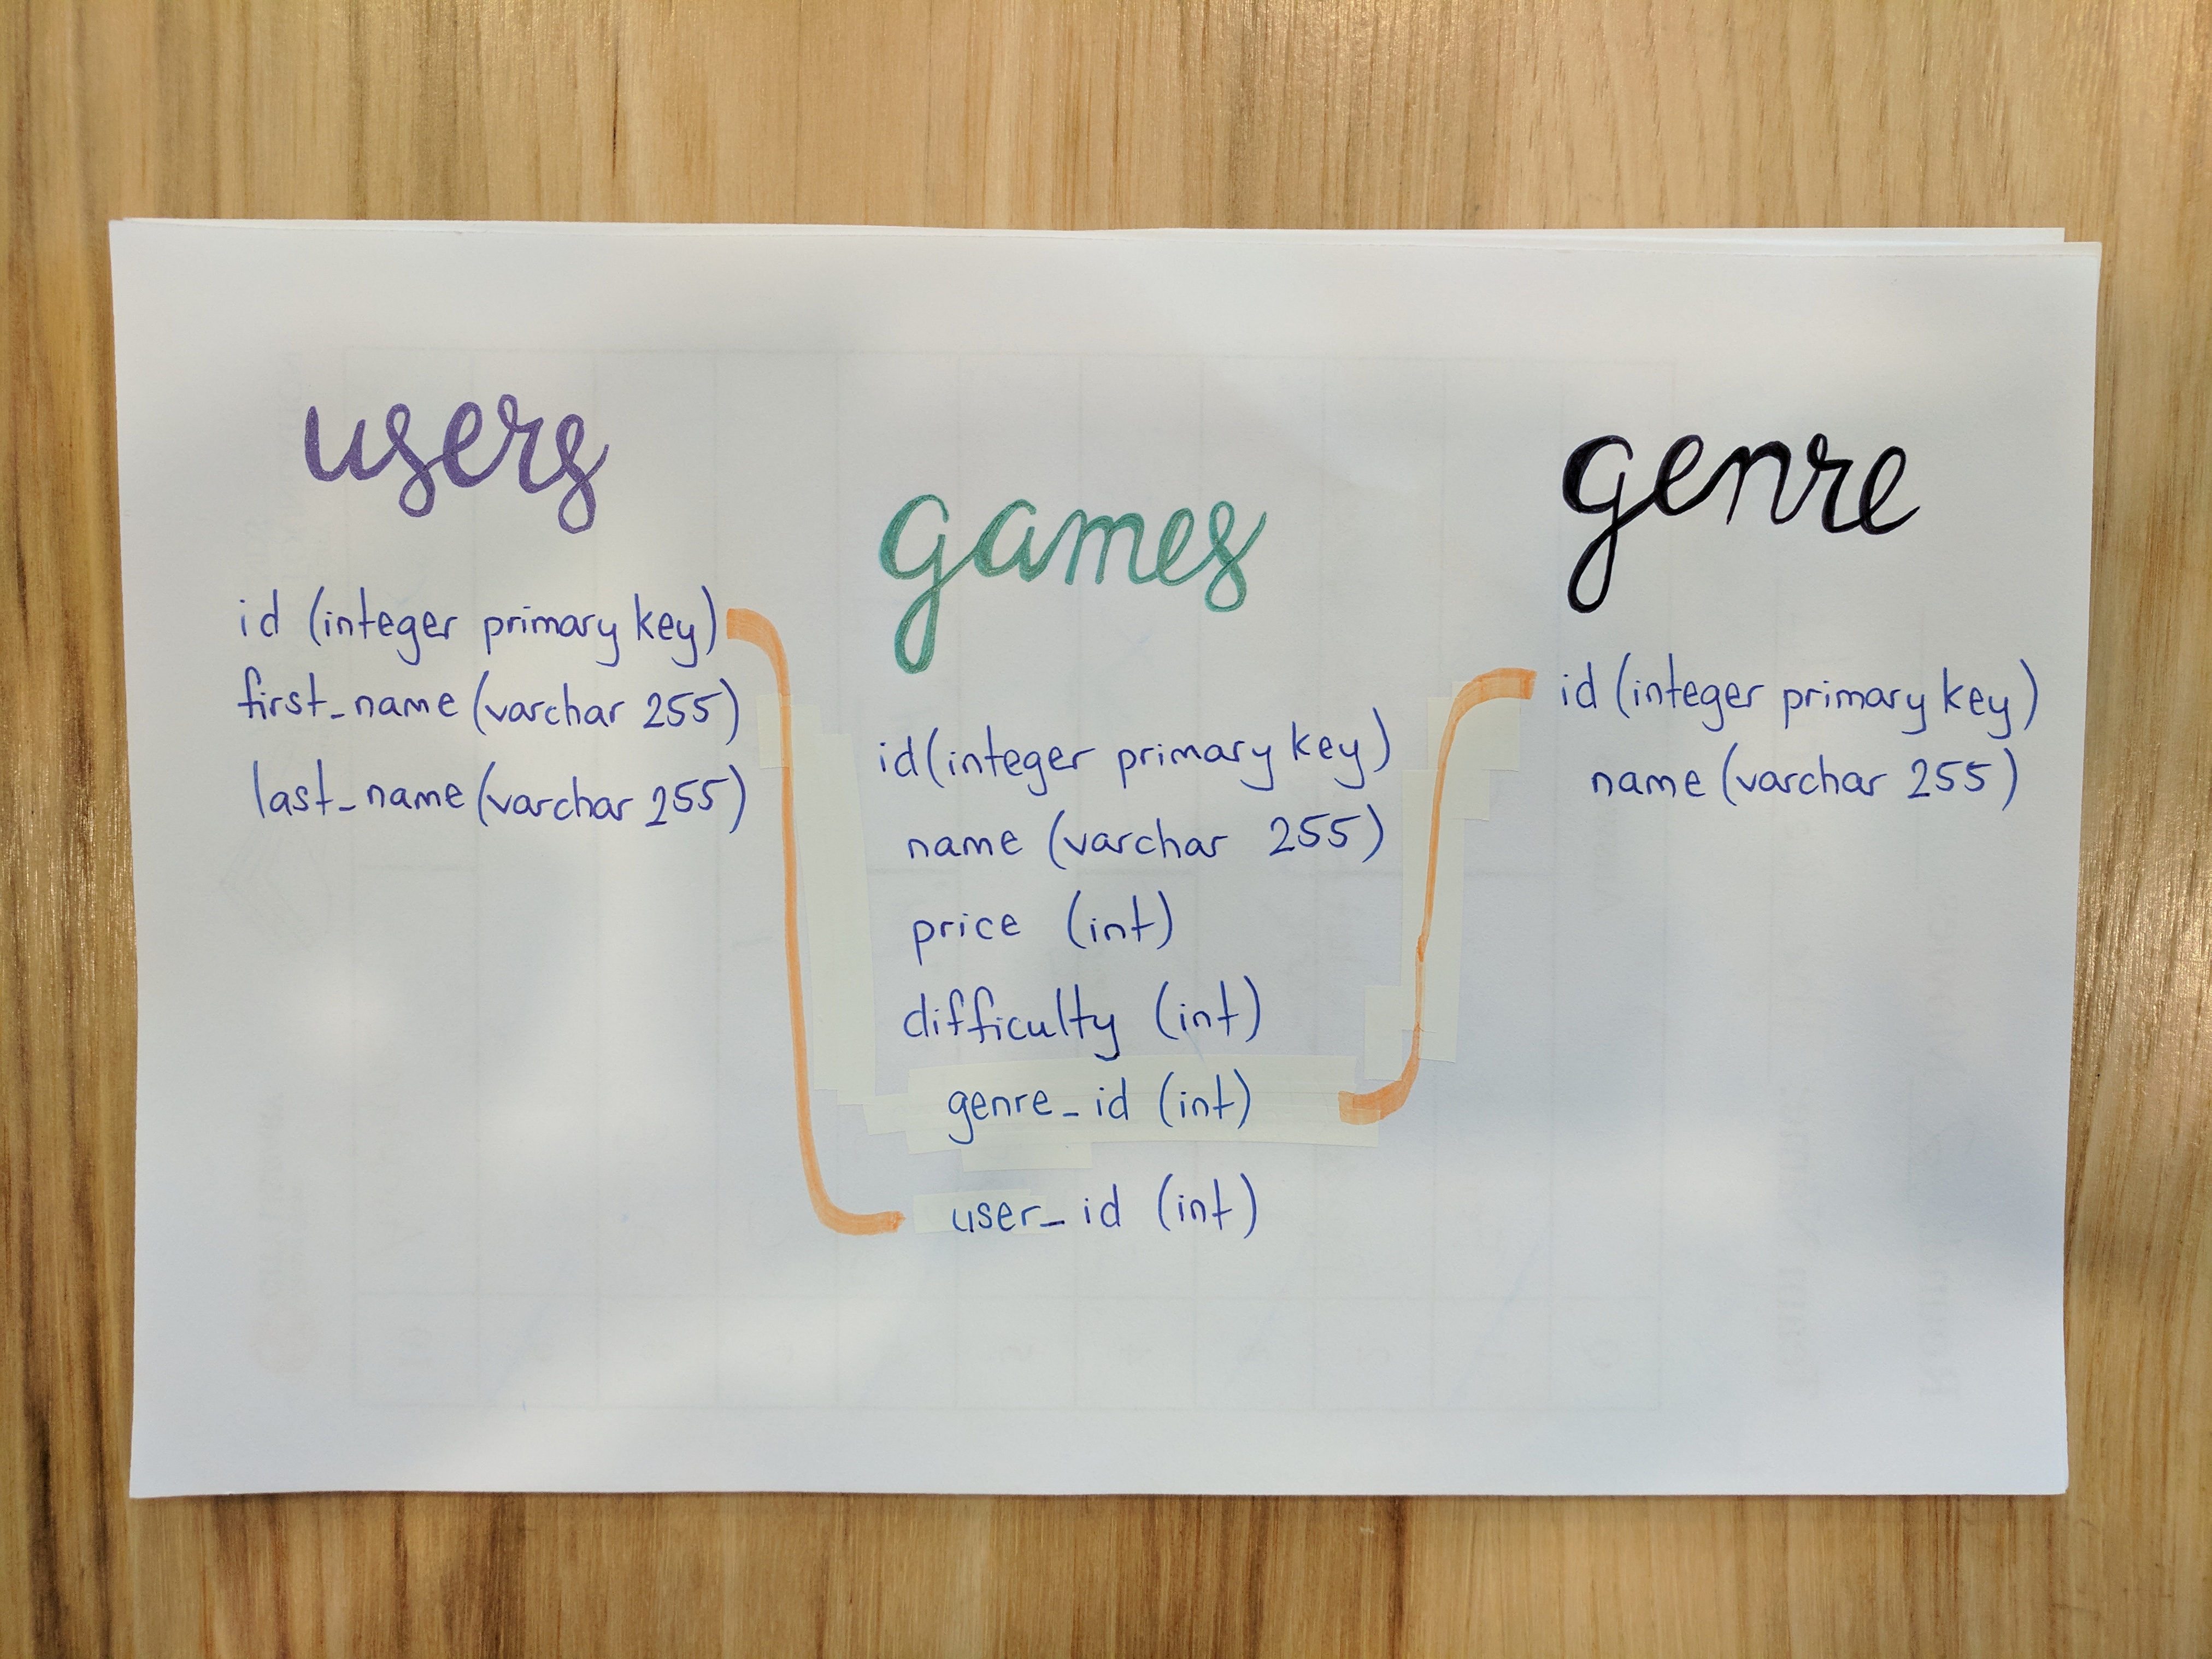 users
id (integer primary key)
first_name (varchar 255)
last_name (varchar 255)
games
id (integer primary key)
name (varchar 255)
price (int)
difficulty (int)
genre_id (int)
user_id (int)
genre
id (integer primary key)
name (varchar 255)